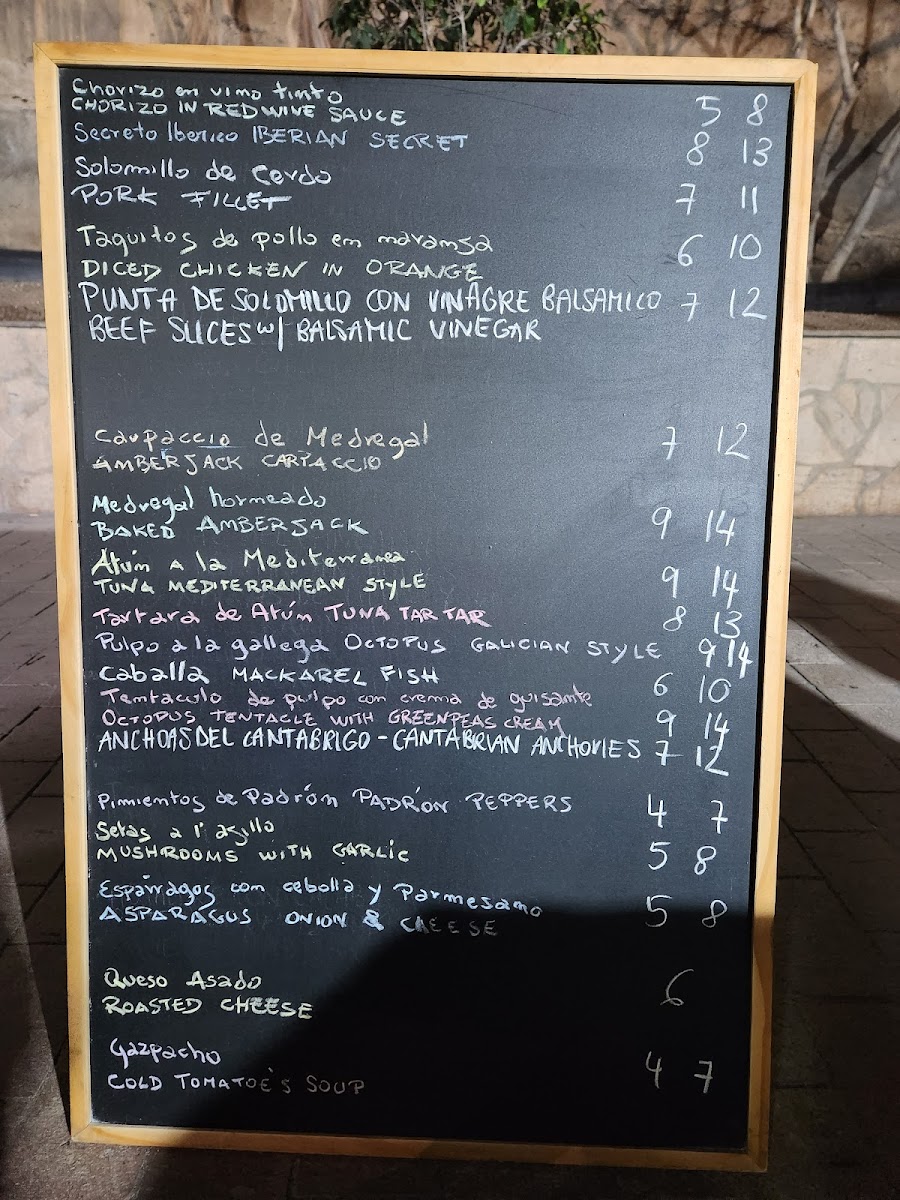 Chorizo en vino tinto
CHORIZO IN RED WINE SAUCE 5 8
Secreto Iberico IBERIAN SECRET 8 13
Solomillo de Cerdo
PORK FILLET 7 11
Taquitos de pollo em naranja 6 10
DICED CHICKEN IN ORANGE
PUNTA DE SOLOMILLO CON VINAGRE BALSAMICO 7 12
BEEF SLICES w/ BALSAMIC VINEGAR
Carpaccio de Medregal 7 12
AMBERJACK CARPACCIO
Medregal horneado
BAKED AMBERJACK 9 14
Atún A la Mediterranea
TUNA MEDITERRANEAN STYLE 9 14
Tartara de Atún TUNA TAR TAR 8 13
Pulpo a la gallega OCTOPUS GALICIAN STYLE 9 14
Caballa MACKAREL FISH 6 10
Temtaculo de pulpo con crema de guisante
OCTOPUS TENTACLE WITH GREENPEAS CREAM 9 14
ANCHOAS DEL CANTABRIGO - CANTABRIAN ANCHOVIES 7 12
Pimientos de Padrón PADRÓN PEPPERS 4 7
Setas a l' ajillo
MUSHROOMS WITH GARLIC 5 8
Espárragos con cebolla y Parmesano
ASPARAGUS ONION & CHEESE 5 8
Queso Asado
ROASTED CHEESE 6
Gazpacho
COLD TOMATOE'S SOUP 4 7